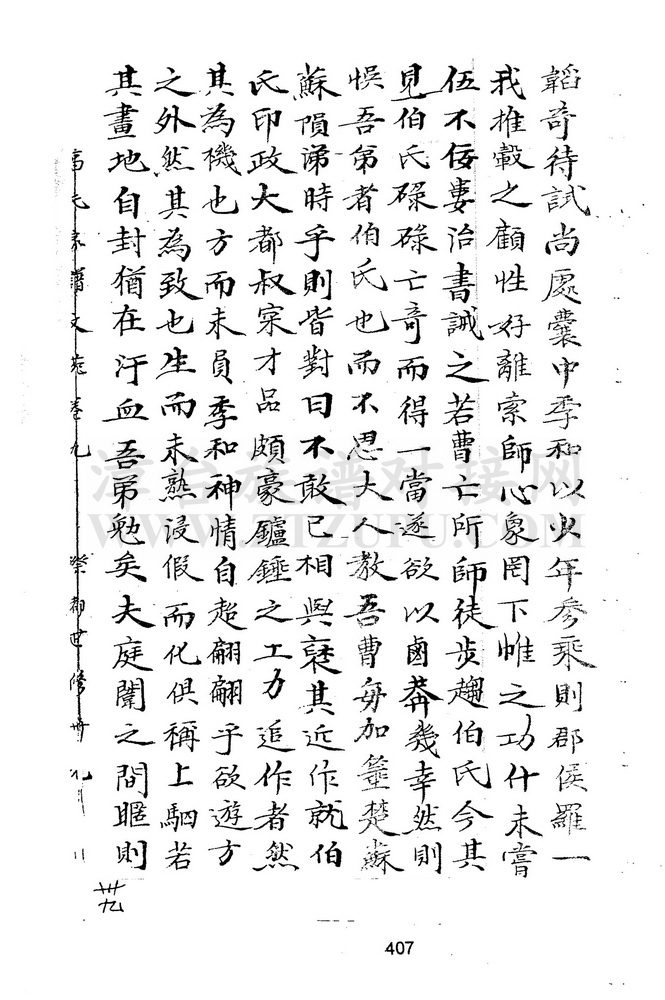 韜奇待試尚處囊中季和以少年參乘則郡侯羅一
我推轂之顧性好離索師心象罔下帷之功什未嘗
伍不佞婁治書誡之若曹亡所師徒步趨伯氏今其
見伯氏碌碌亡奇而得一當遂欲以鹵莽幾幸然則
悞吾弟者伯氏也而不思大人教吾曹毋加箠楚蘇
蘇隕涕時乎則皆對曰不敢已相與裒其近作就伯
氏印政大都叔宲才品頗豪鑪錘之工力追作者然
其為機也方而未員季和神情自超翩翩乎欲遊方
之外然其為致也生而未熟浸假而化俱稱上駟若
其畫地自封猶在汗血吾弟勉矣夫庭闈之間暱則
高氏家譜文苑卷九
卅九
407
漳台族谱对接网
WWW.ZTZUPU.COM